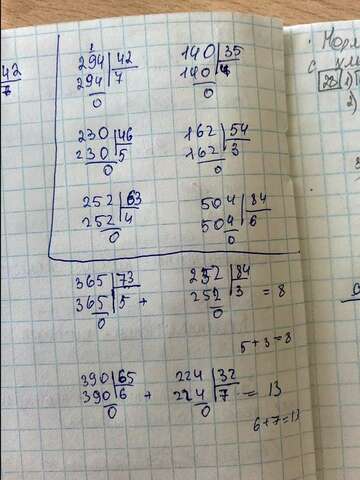 42
294 | 42
294 | 7
0
140 | 35
140 | 4
0
230 | 46
230 | 5
0
162 | 54
162 | 3
0
252 | 63
252 | 4
0
504 | 84
504 | 6
0
365 | 73
365 | 5 +
0
252 | 84
252 | 3 = 8
0
5+3=8
390 | 65
390 | 6 +
0
224 | 32
224 | 7 = 13
0
6+7=13
28 1)
2)